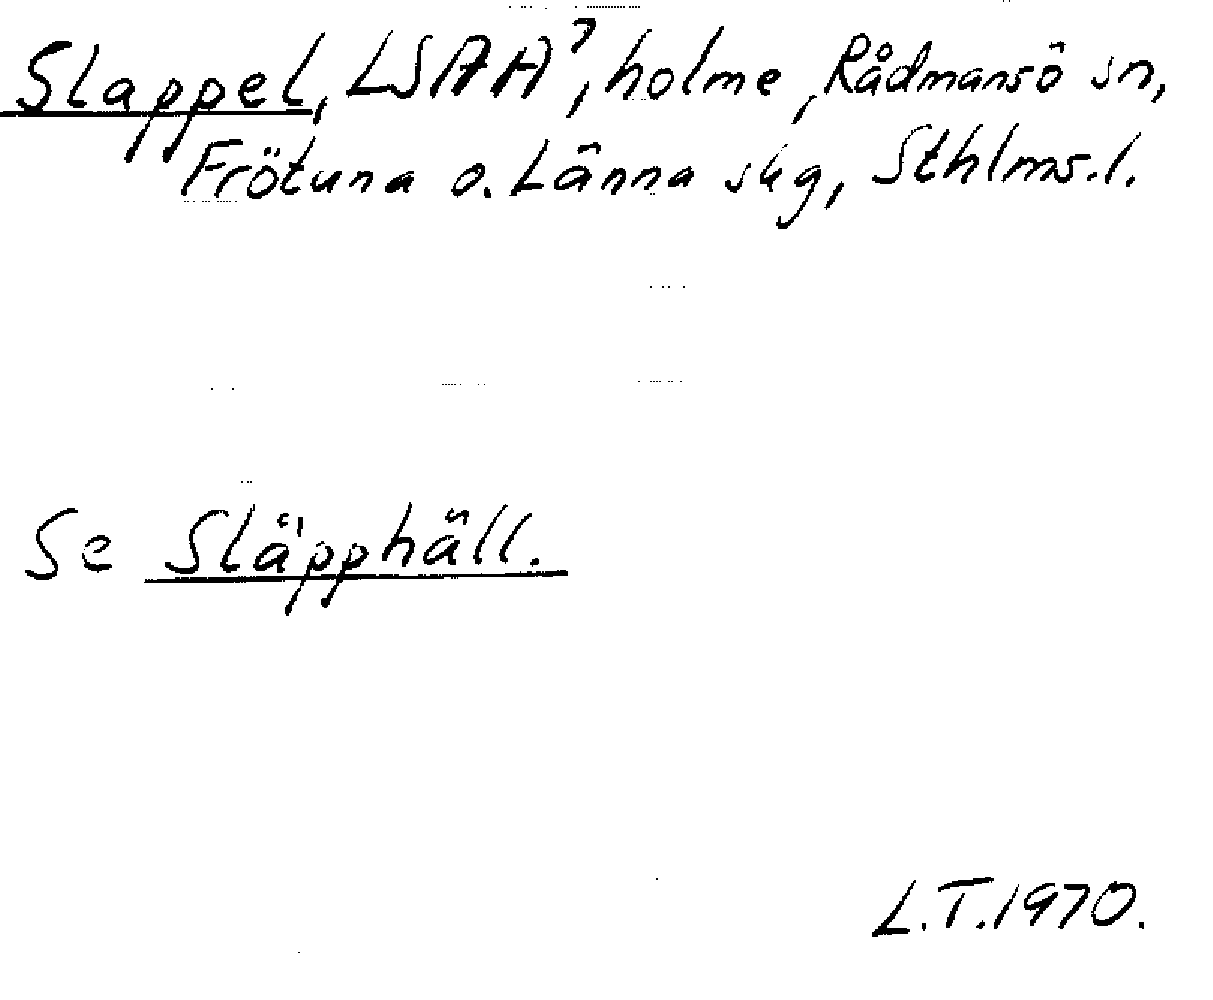 Slappel, LSAA?, holme, Rådmansö sn,
Frötuna o. Länna skg, Sthlms.l.
Se Släpphäll.
L.T.1970.